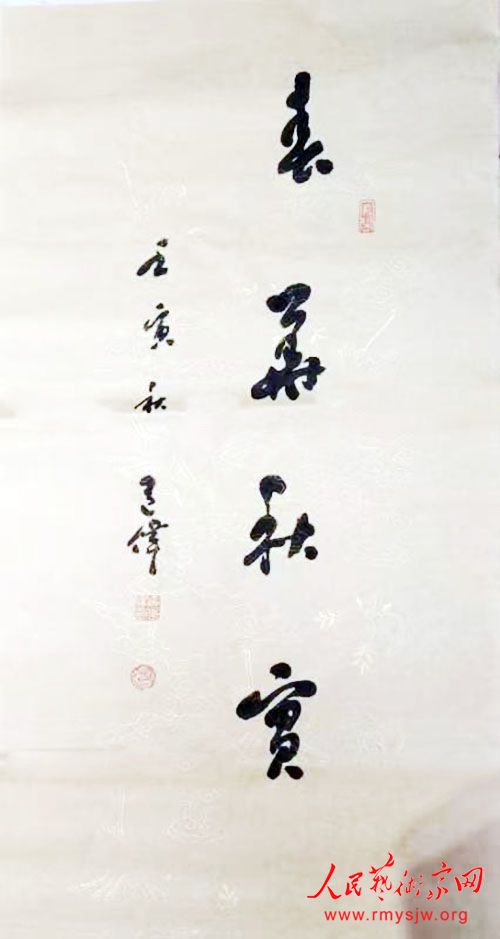 春華秋實
壬寅秋
偉
人民藝術家网
www.rmysjw.org